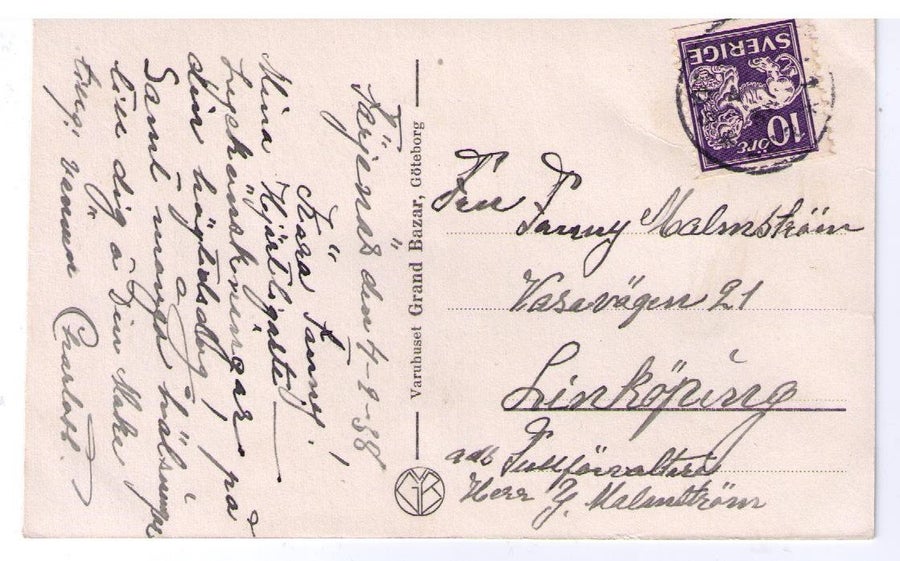 Färjenäs den 4-2-38
Kära Fanny!
Mina Hjärtligaste
Lyckönskningar på
din högtidsdag,
Samt många hälsningar
till dig å Din Make
vännen Charlott.
Varuhuset Grand Bazar, Göteborg
GBK
SVERIGE
10 ÖRE
Fru Fanny Malmström
Vasavägen 21
Linköping
adr
Herr Y. Malmström